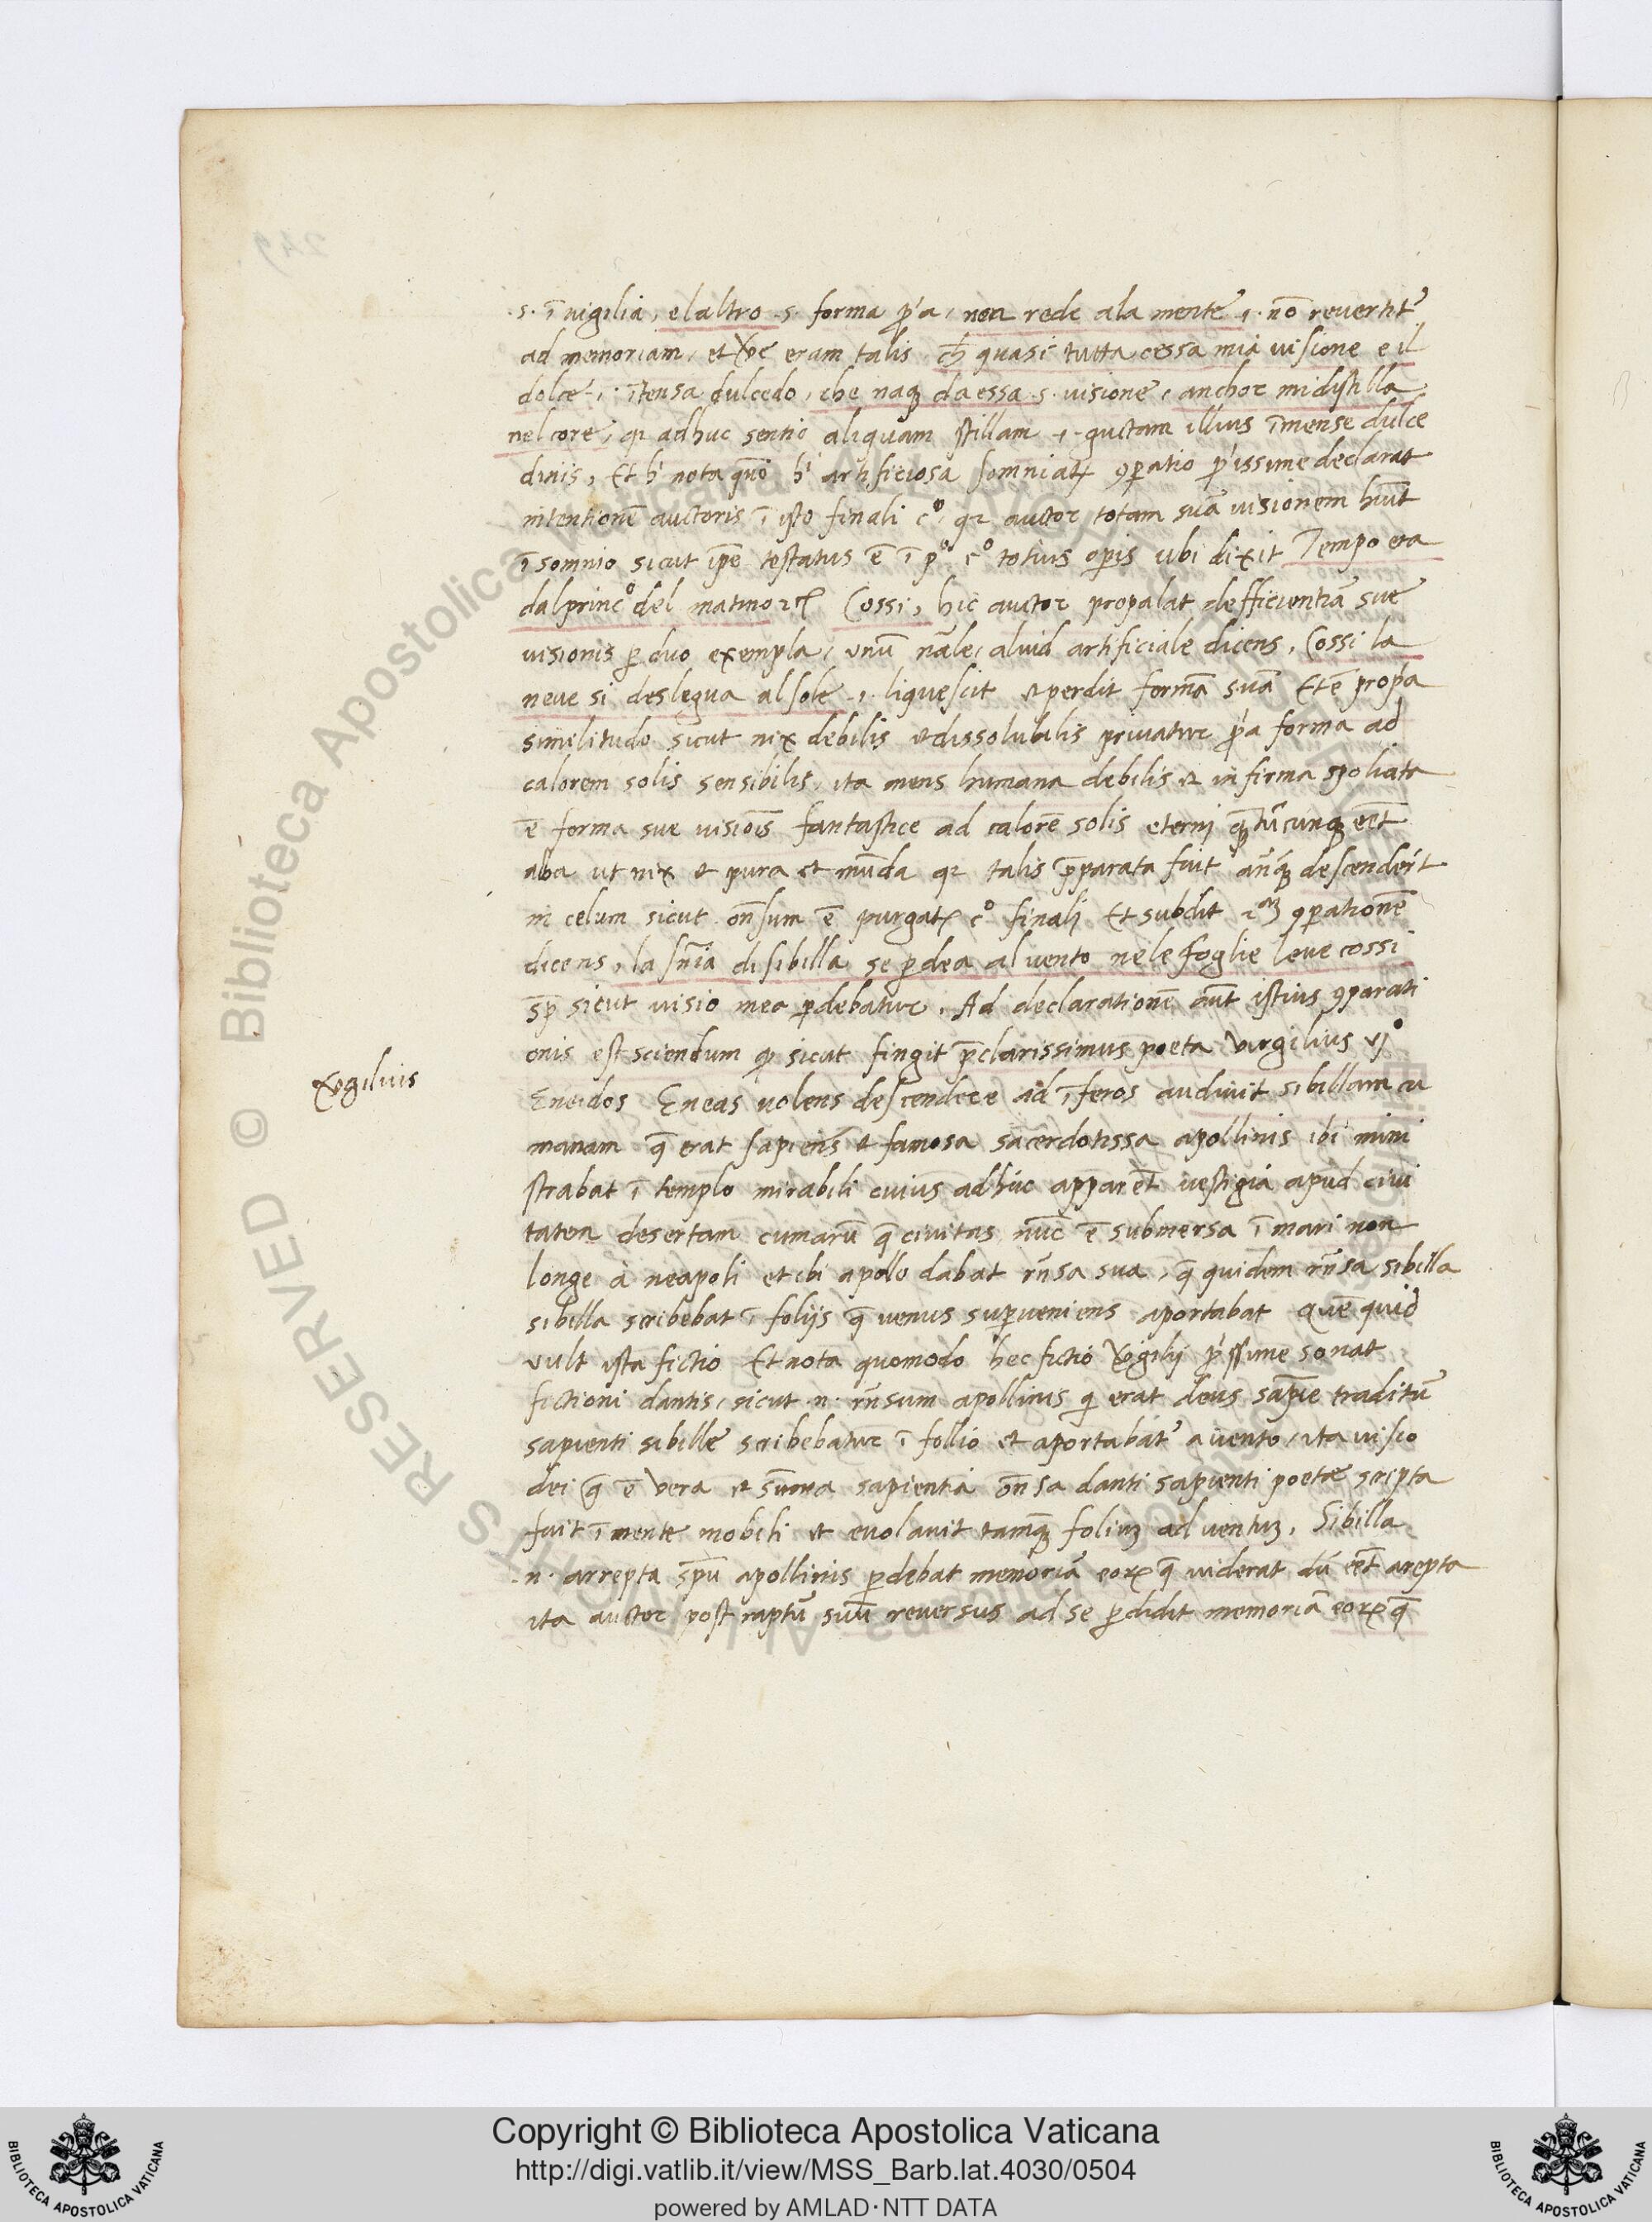 .s. ī vigilia, el altro .s. forma p̱'a, non rede ala mente .i. nō revertit᷑
ad memoriam, et v̄e eram talis ch̄ quasi tutta cessa mia visione e il
dolce .i. ītensa dulcedo, che naqꝫ da essa .s. visione, anchor mi distilla
nel core, qꝛ adhuc sentio aliquam stillam .i. guttam illius īmense dulce
dinis, Et hͥ nota quō hͥ artificiosa somniatꝝ ꝯparatio pͥissime declarat
intentionē auctoris ī isto finali cͦ, qꝛ auctor totam suā visionem huit
ī somnio sicut ip̄e testatus ē ī pͦ cͦ totius op̄is ubi dixit Tempo era
dal princͦ del matino ꝛcꝭ Cossi, hic auctor propalat defficientiā sue
visionis ꝑ duo exempla, unū nāle, aliud artificiale dicens, Cossi la
neve si deslegua al sole .i. liquescit et perdit formā suā Et ē prop̱a
similitudo sicut nix debilis et dissolubilis privatur pͥa forma ad
calorem solis sensibilis, ita mens humana debilis et infirma spoliata
ē forma sue visiōis fantastice ad calorē solis eterni qꝫtūcunqꝫ eēt
alba ut nix et pura et mūda qꝛ talis p̄parata fuit an̄qꝫ descenderit
in celum sicut on̄sum ē purgatꝭ cͦ finali Et subdit ꝛam ꝯparationē
dicens, la sn̄ia di sibilla se ꝑdea al vento nele foglie leve cossi
sp̄ sicut visio mea ꝑdebatur. Ad declarationē aūt istius ꝯparati
onis est sciendum ꝙ sicut fingit p̄clarissimus poeta Virgilius vjͦ
Eneidos Eneas volens descendere ad īferos audivit sibillam cu
manam q̄ erat sapiens et famosa sacerdotissa apollinis ibi mini
strabat ī templo mirabili cuius adhuc apparēt vestigia apud civi
tatem desertam cumarū q̄ civitas nūc ē submersa ī mari non
longe à neapoli et ibi apollo dabat rn̄sa sua, q̄ quidem rn̄sa sibilla
sibilla scribebat ī foliis q̄ venus suꝑveniens aportabat quē quid
vult ista fictio Et nota quomodo hec fictio Vgilij pͥissime sonat
fictioni dantis, sicut .n. rn̄sum apollinis qͥ erat deus sap̄ie traditū
sapienti sibille scribebatur ī follio et aportabat᷑ a vento, ita visio
dei q̄ ē vera et sūma sapientia on̄sa danti sapienti poetae scripta
fuit ī mente mobili et evolavit tamqꝫ foliuꝫ ad ventuꝫ. Sibilla
.n. arrepta sp̄u apollinis ꝑdebat memoriā eoꝝ q̄ viderat dū eēt arepta
ita auctor post raptū suū reversus ad se ꝑdidit memoriā eoꝝ q̄
Vgilius
Copyright © Biblioteca Apostolica Vaticana
http://digi.vatlib.it/view/MSS_Barb.lat.4030/0504
powered by AMLAD·NTT DATA
BIBLIOTECA APOSTOLICA VATICANA
BIBLIOTECA APOSTOLICA VATICANA